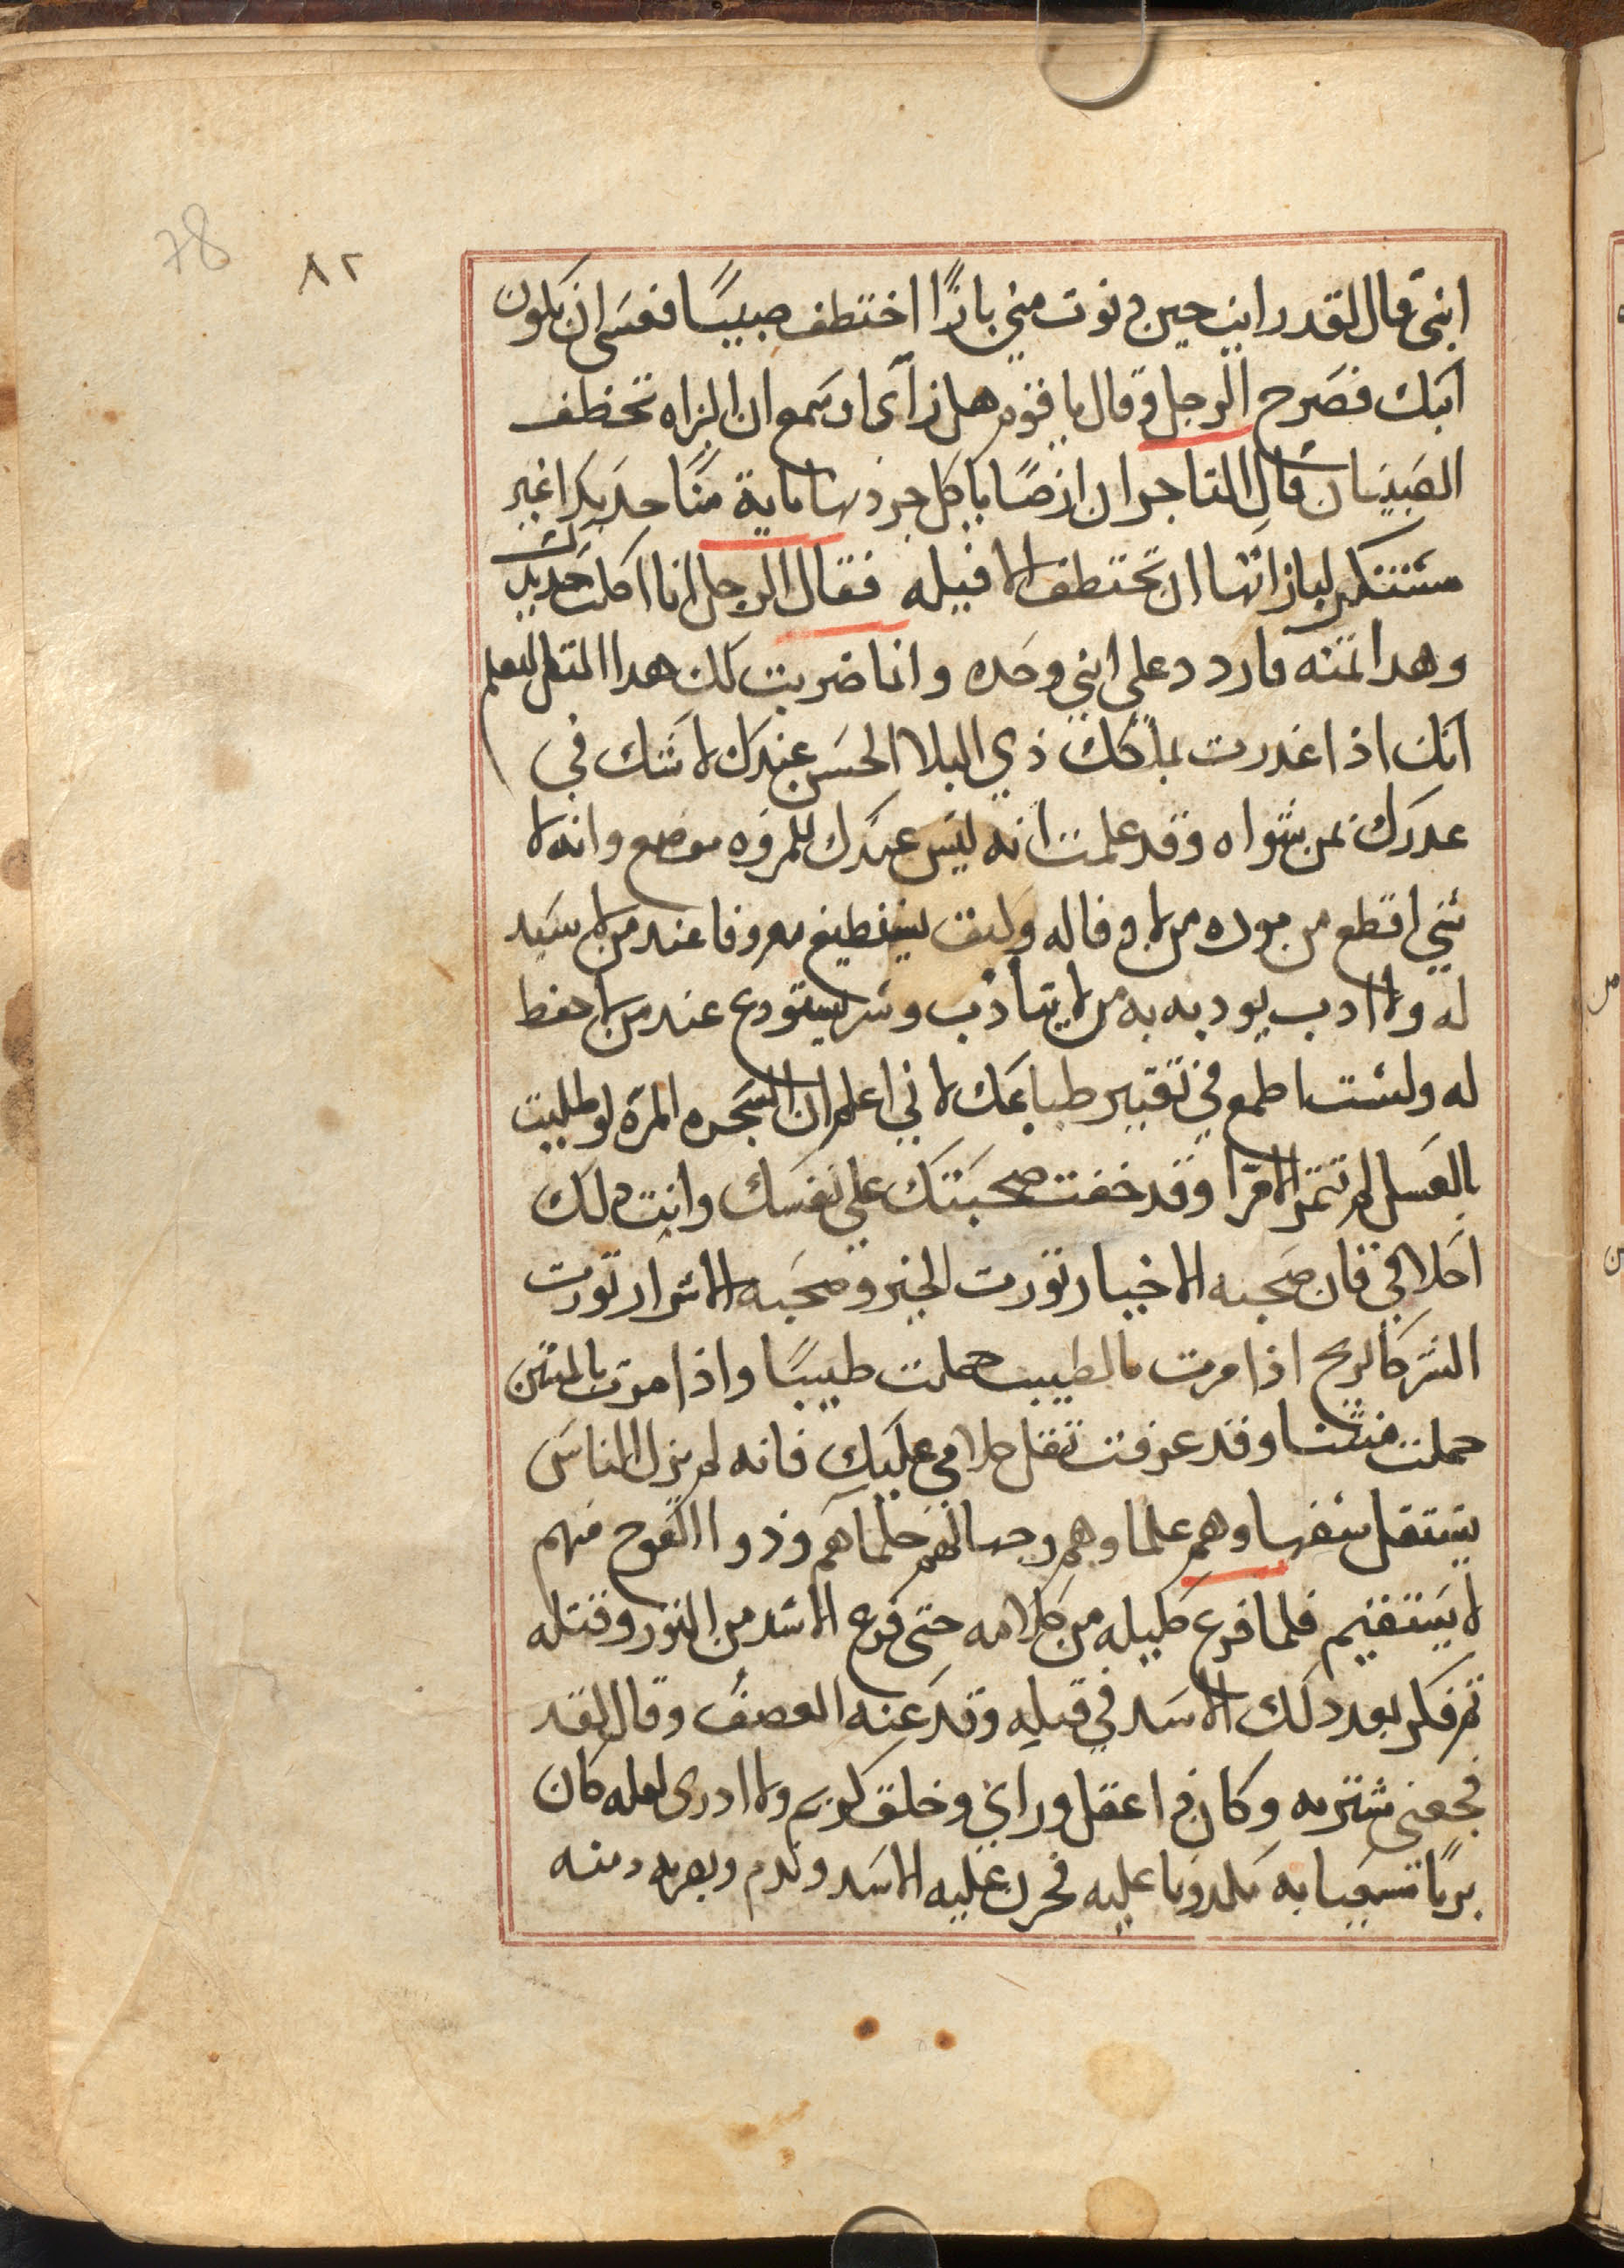 78 ٨٢
ابني قال لقد رايت حين دنوت مني بازًا اختطف صبيًا فعسى ان يكون
ابنك فصرخ الرجل وقال يا قوم هل رأى او سمع ان البزاه تخطف
الصبيان قال التاجر ان ارضًا ياكل جردنها ماية منًا حديدا غير
مستنكر لبازاتها ان تختطف الافيله فقال الرجل انا اكلت حديدك
وهدا تمنه فاردد علي ابني وحده وانما ضربت لك هدا المتل لتعلم
انك اذا غدرت بملكك ذي البلا الحسن عندك لا شك في
عدرك بمن سواه وقد علمت انه ليس عندك للمروه موضع وانه لا
شي اقطع من موده من لا وفا له وكيف يستطيع معروفا عند من لا سيد
له ولا ادب يودبه به من لا يتأدب وسر يستودع عند من لا حفظ
له ولست اطمع في تغيير طباعك لاني اعلم ان الشجره المرة لو طليت
بالعسل لم تتمر الا مرّا وقد خفت صحبتك على نفسك وانت دلك
اخلاقي فان صحبه الاخيار تورت الخير وصحبه الاشرار تورت
الشر كالريح اذا مرت بالطيب حملت طيبًا واذا مرت بالمنتن
حملت منتنا وقد عرفت تقل كلامي عليك فانه لم يزل الناس
يستقل سفهاوهم علماوهم وجهالهم حلماهم وذووا العوج منهم
لا يستقيم فلما فرع كليله من كلامه حتى فرع الاسد من التور وقتله
تم فكر بعد دلك الاسد في قتله وقد عنه الغضب وقال لقد
فجعني شتربه وكان دا عقل وراي وخلق كريم ولا ادرى لعله كان
بريًا تسعيا به مكدوبا عليه فحزن عليه الاسد وندم وبصر به دمنه